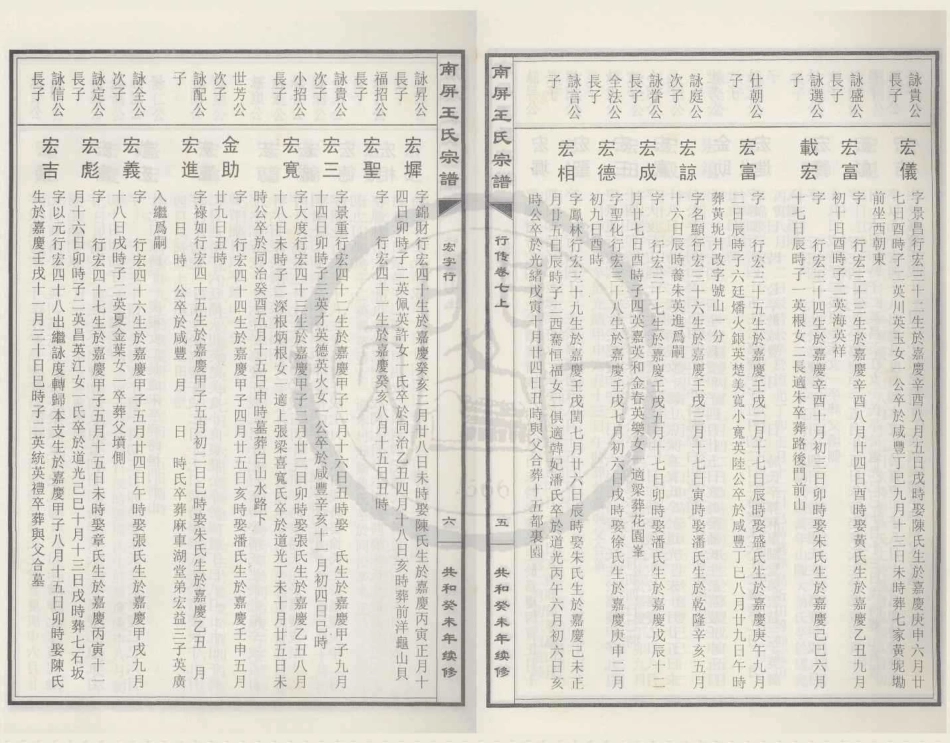 南屏王氏宗譜
行传卷七上
五
共和癸未年续修
詠貴公
長子
宏儀
字景昌行宏三十二生於嘉慶辛酉八月五日戌時娶陳氏生於嘉慶庚申六月廿
七日酉時子二英川英玉女一公卒於咸豐丁巳九月十三日未時葬七家黃坭墈
前坐西朝東
詠盛公
長子
宏富
字 行宏三十三生於嘉慶辛酉八月廿四日酉時娶黃氏生於嘉慶乙丑九月
初十日酉時子二英海英祥
詠選公
長子
載宏
字 行宏三十四生於嘉慶辛酉十月初三日卯時娶朱氏生於嘉慶己巳六月
十七日辰時子一英根女二長適朱卒葬路後門前山
仕朝公
子
宏富
字 行宏三十五生於嘉慶壬戌二月十七日辰時娶盛氏生於嘉慶庚午九月
二日辰時子六廷燔火銀英楚美寬小寬英陸公卒於咸豐丁巳八月廿九日午時
葬黃坭爿改字號山一分
詠庭公
次子
宏諒
字名顯行宏三十六生於嘉慶壬戌三月十七日寅時娶潘氏生於乾隆辛亥五月
十六日辰時養朱英進爲嗣
詠眷公
長子
宏成
字 行宏三十七生於嘉慶壬戌五月十七日卯時娶潘氏生於嘉慶戊辰十二
月廿七日酉時子四英嘉英和金春英樂女一適梁葬花園峯
全法公
長子
宏德
字聖化行宏三十八生於嘉慶壬戌七月初六日戌時娶徐氏生於嘉慶庚申二月
初九日酉時
詠言公
子
宏相
字鳳林行宏三十九生於嘉慶壬戌閏七月廿六日辰時娶朱氏生於嘉慶己未正
月廿五日辰時子二西騫恒福女二俱適韓妃潘氏卒於道光丙午六月初六日亥
時公卒於光緒戊寅十月廿四日丑時與父合葬十五都裏園
南屏王氏宗譜
宏字行
六
共和癸未年续修
詠昇公
長子
宏墀
字錦財行宏四十生於嘉慶癸亥二月廿八日未時娶陳氏生於嘉慶丙寅正月十
四日卯時子二英佩英許女一氏卒於同治乙丑四月十八日亥時葬前洋龜山貝
福招公
長子
宏聖
字 行宏四十一生於嘉慶癸亥八月十五日丑時
詠貴公
次子
宏三
字景重行宏四十二生於嘉慶甲子二月十六日丑時娶 氏生於嘉慶甲子九月
十四日卯時子三英才英德英火女一公卒於咸豐辛亥十一月初四日巳時
小招公
長子
宏寬
字大度行宏四十三生於嘉慶甲子二月廿二日卯時娶張氏生於嘉慶乙丑八月
十八日未時子二深根炳根女一適上張梁喜寬氏卒於道光丁未十月廿五日未
時公卒於同治癸酉五月十五日申時墓葬白山水路下
世芳公
次子
金助
字 行宏四十四生於嘉慶甲子四月廿五日亥時娶潘氏生於嘉慶壬申五月
廿九日丑時
詠配公
子
宏進
字祿如行宏四十五生於嘉慶甲子五月初二日巳時娶朱氏生於嘉慶乙丑 月
日 時 公卒於咸豐 月 日 時氏卒葬麻車湖堂弟宏益三子英廣
入繼爲嗣
詠全公
次子
宏義
字 行宏四十六生於嘉慶甲子五月廿四日午時娶張氏生於嘉慶甲戌九月
十八日戌時子二英夏金葉女一卒葬父墳側
詠定公
長子
宏彪
字 行宏四十七生於嘉慶甲子五月十五日未時娶章氏生於嘉慶丙寅十一
月十六日卯時子二英昌英江女一氏卒於道光己巳十月十三日戌時葬七石坂
詠信公
長子
宏吉
字以元行宏四十八出繼詠度轉歸本支生於嘉慶甲子八月十五日卯時娶陳氏
生於嘉慶壬戌十一月三十日巳時子二英統英禮卒葬與父合墓